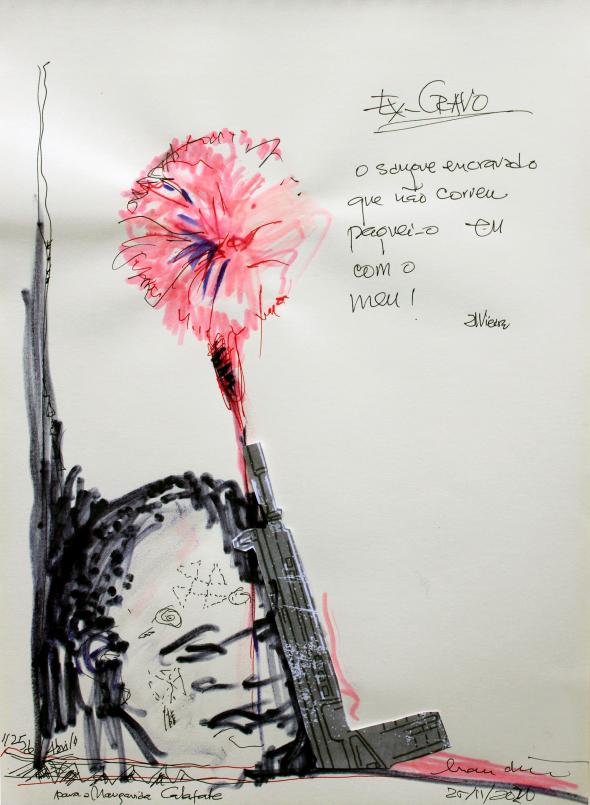 Ex-Cravo
o sangue encravado
que não correu
paguei-o eu
com o
meu!
"25 de Abril"
para a Margarida Calafate
20/11/2020